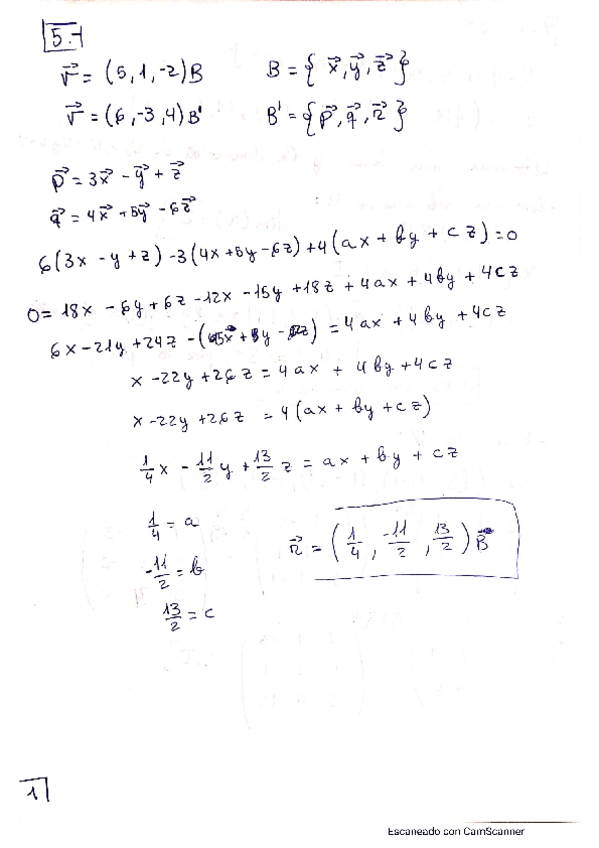 5.-1
r⃗ = (5, 1, -2)B B = { x⃗, y⃗, z⃗ }
r⃗ = (6, -3, 4)B' B' = { p⃗, q⃗, r⃗ }
p⃗ = 3x⃗ - y⃗ + z⃗
q⃗ = 4x⃗ + 5y⃗ - 6z⃗
6(3x - y + z) - 3(4x + 5y - 6z) + 4(ax + by + cz) = 0
0 = 18x - 6y + 6z - 12x - 15y + 18z + 4ax + 4by + 4cz
6x - 21y + 24z - ( ) = 4ax + 4by + 4cz
x - 22y + 26z = 4ax + 4by + 4cz
x - 22y + 26z = 4(ax + by + cz)
1/4 x - 11/2 y + 13/2 z = ax + by + cz
1/4 = a
r⃗ = (1/4, -11/2, 13/2) B
-11/2 = b
13/2 = c
1
Escaneado con CamScanner